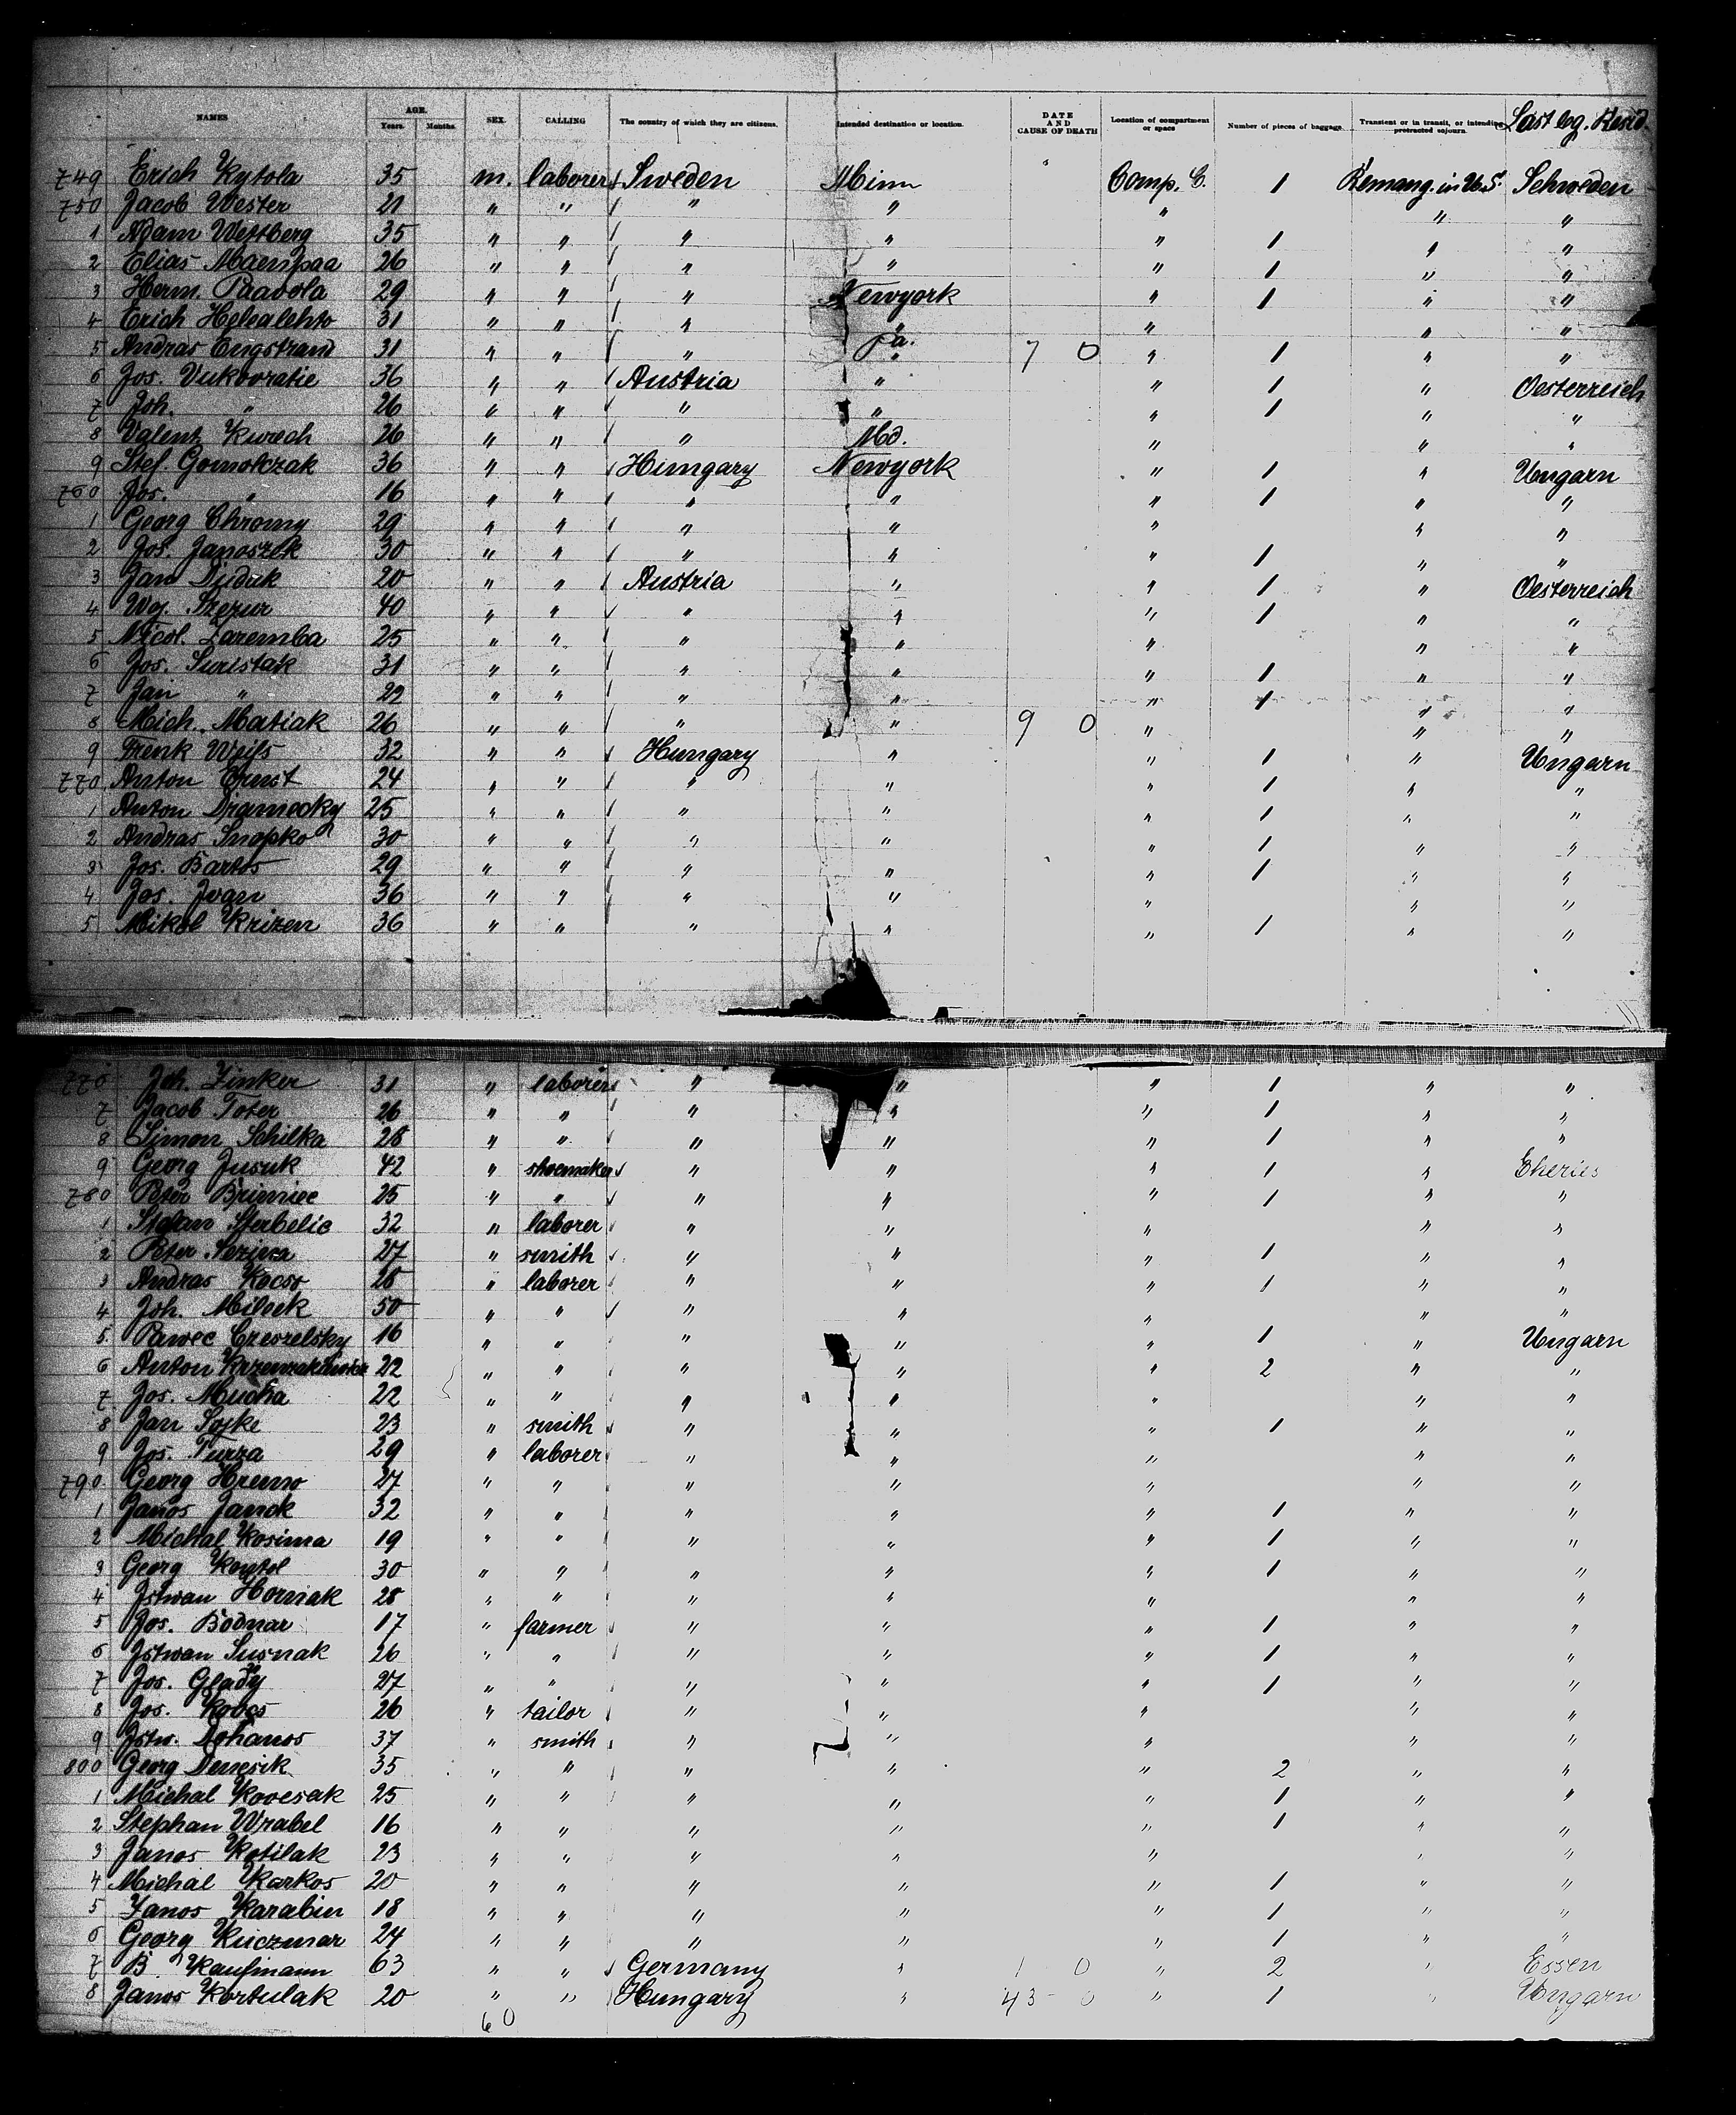 NAMES AGE. Years. Months. SEX. CALLING The country of which they are citizens. Intended destination or location. DATE AND CAUSE OF DEATH Location of compartment or space Number of pieces of baggage Transient or in transit, or intending protracted sojourn. Last leg. Resid.
749 Erich Kytola 35 m. laborer Sweden Minn Comp. C. 1 in U.S. Schweden
750 Jacob Wester 21 " " " " " " "
1 Adam Westberg 35 " " " " " 1 " "
2 Elias Maenpaa 26 " " " " " 1 " "
3 Herm. Paavola 29 " " " Newyork " 1 " "
4 Erich 31 " " " " " " "
5 Andras Engstrand 31 " " " Pa. 7 0 " 1 " "
6 Jos. Vukovratie 36 " " Austria " " 1 " Oesterreich
7 Joh. " 26 " " " " " 1 " "
8 Valent Kurech 26 " " " Md. " " "
9 Stef. Gomolczak 36 " " Hungary Newyork " 1 " Ungarn
760 Jos. " 16 " " " " " 1 " "
1 Georg Chromy 29 " " " " " " "
2 Jos. Janoszok 30 " " " " " 1 " "
3 Jan Diduk 20 " " Austria " " 1 " Oesterreich
4 Woj. Szczur 40 " " " " " 1 " "
5 Nicol. Zaremba 25 " " " " " " "
6 Jos. Suristak 31 " " " " " 1 " "
7 Jan " 22 " " " " " 1 " "
8 Mich. Matiak 26 " " " " 9 0 " " "
9 Frenk Weiss 32 " " Hungary " " 1 " Ungarn
770 Anton Ernst 24 " " " " " 1 " "
1 Anton Dramecky 25 " " " " " 1 " "
2 Andras Snopko 30 " " " " " 1 " "
3 Jos. Bartos 29 " " " " " 1 " "
4 Jos. Ivan 36 " " " " " " "
5 Mikol Krizen 36 " " " " " 1 " "
776 Joh. Zinker 31 " laborer " " " 1 " "
7 Jacob Toter 26 " " " " " 1 " "
8 Simon Schilka 28 " " " " " 1 " "
9 Georg Jusuk 42 " shoemaker " " " 1 " Eheries
780 Peter Brimiec 25 " " " " " 1 " "
1 Stefan Sterbelic 32 " laborer " " " " "
2 Peter Sezina 27 " smith " " " 1 " "
3 Andras Kocso 28 " laborer " " " 1 " "
4 Joh. Mileck 50 " " " " " " "
5 Pawec Czeszelsky 16 " " " " " 1 " Ungarn
6 Anton 22 " " " " " 2 " "
7 Jos. Mucha 22 " " " " " " "
8 Jan Sojke 23 " smith " " " 1 " "
9 Jos. Turza 29 " laborer " " " " "
790 Georg Hreno 27 " " " " " " "
1 Janos Janok 32 " " " " " 1 " "
2 Michal Kosima 19 " " " " " 1 " "
3 Georg 30 " " " " " 1 " "
4 Istwan Horniak 28 " " " " " " "
5 Jos. Bodnar 17 " farmer " " " 1 " "
6 Istwan Susnak 26 " " " " " 1 " "
7 Jos. Glady 27 " " " " " 1 " "
8 Jos. Kovcs 26 " tailor " " " " "
9 Istw. Dohanos 37 " smith " " " " "
800 Georg Denesik 35 " " " " " 2 " "
1 Michal Kovesak 25 " " " " " 1 " "
2 Stephan Wrabel 16 " " " " " 1 " "
3 Janos Kotilak 23 " " " " " " "
4 Michal Karkos 20 " " " " " 1 " "
5 Janos Karabin 18 " " " " " 1 " "
6 Georg Kuczmar 24 " " " " " 1 " "
7 B. Kaufmann 63 " " Germany " 1 0 " 2 " Essen
8 Janos Kortulak 20 " " Hungary " 43 0 " 1 " Ungarn
60